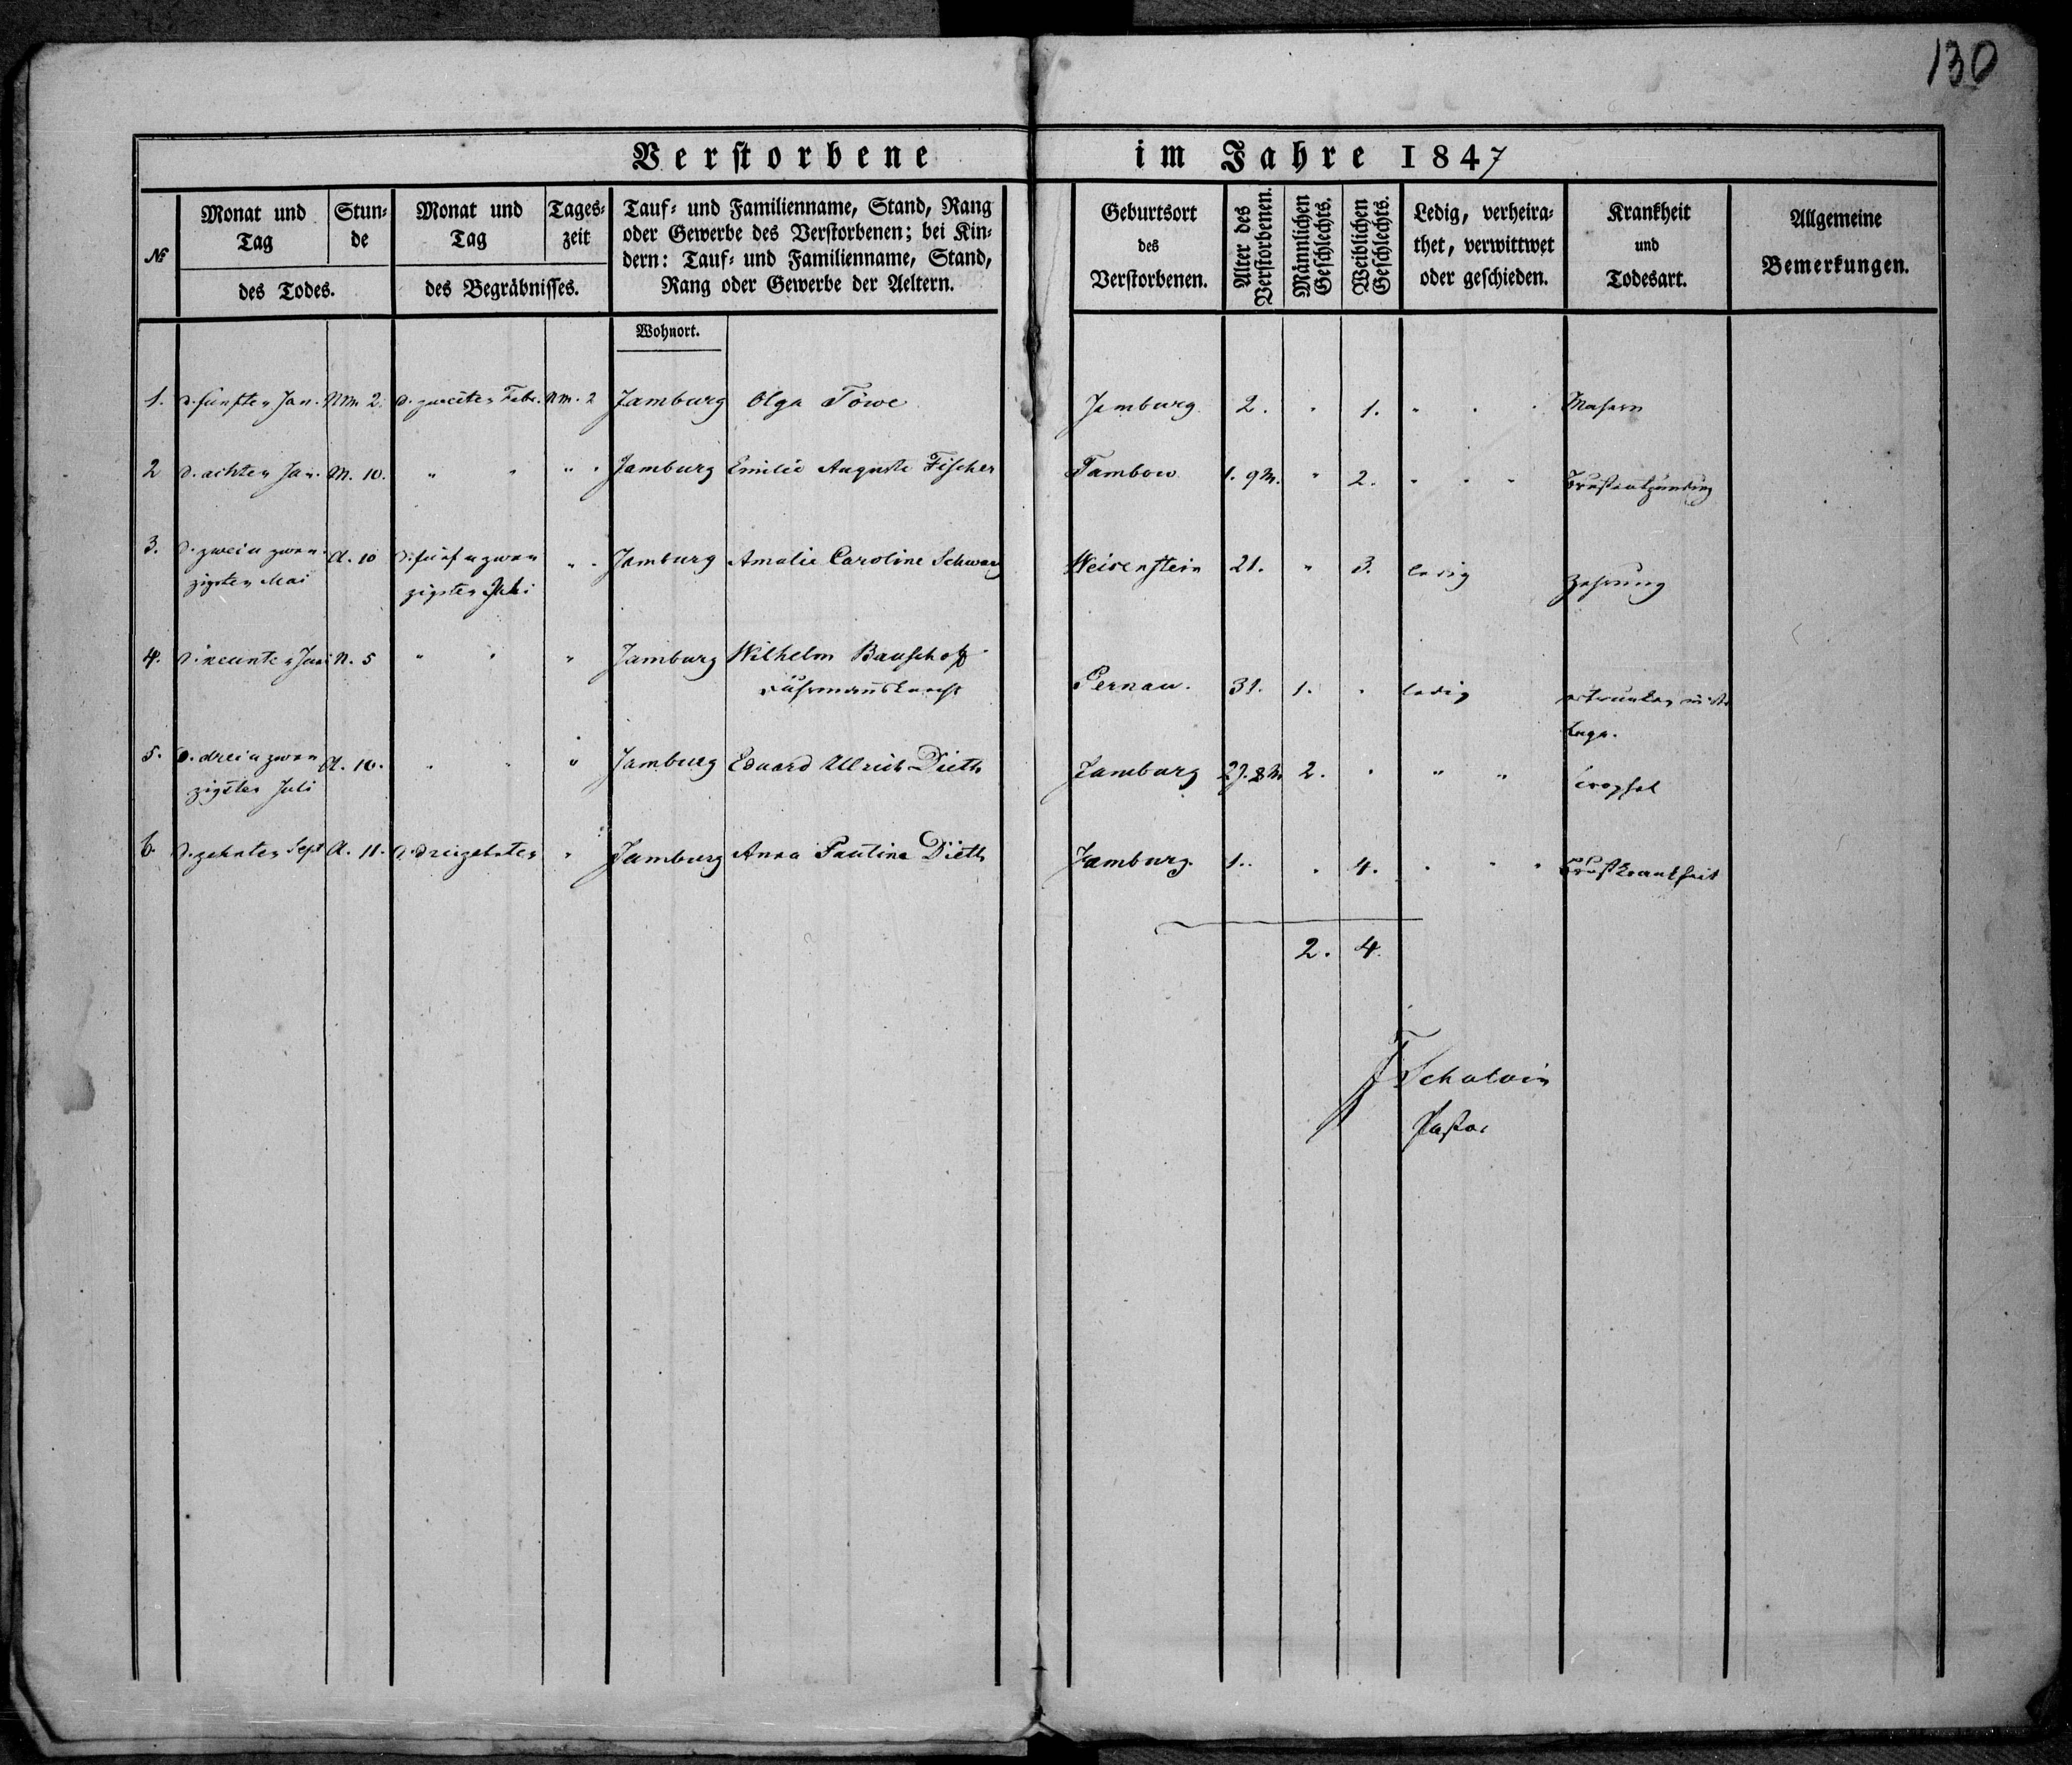 130
Verstorbene im Jahre 1847
№
Monat und Tag
Stunde
des Todes.
Monat und Tag
Tageszeit
des Begräbnisses.
Tauf- und Familienname, Stand, Rang
oder Gewerbe des Verstorbenen; bei Kin-
dern: Tauf- und Familienname, Stand,
Rang oder Gewerbe der Aeltern.
Wohnort.
Geburtsort
des
Verstorbenen.
Alter des Verstorbenen.
Männlichen Geschlechts.
Weiblichen Geschlechts.
Ledig, verheira-
thet, verwittwet
oder geschieden.
Krankheit
und
Todesart.
Allgemeine
Bemerkungen.
1. d. fünften Jan. Nm. 2. d. zweiten Febr. Nm. 2 Jamburg Olga Töwe Jamburg 2. " 1. " " " Masern
2 d. achten Jan. M. 10. " " " " Jamburg Emilie Auguste Fischer Tambow 1. 9 M. " 2. " " " Brustentzündung
3. d. zwei u zwan- A. 10 d. fünf u zwan " " Jamburg Amalie Caroline Schwarz Weisenstein 21. " 3. ledig Zehrung
zigsten Mai zigsten
4. d. neunten N. 5 " " " Jamburg Wilhelm Pernau. 31. 1. " ledig ertrunken in der
Luga.
5. d. drei u zwan A. 10. " " " Jamburg Eduard Ullrich Dieth Jamburg 2 J. 8 M. 2. " " "
zigsten Juli
6. d. zehnten Sept A. 11. d. dreizehnten " Jamburg Anna Pauline Dieth Jamburg. 1. " 4. " " " Brustkrankheit
2. 4.
Pastor